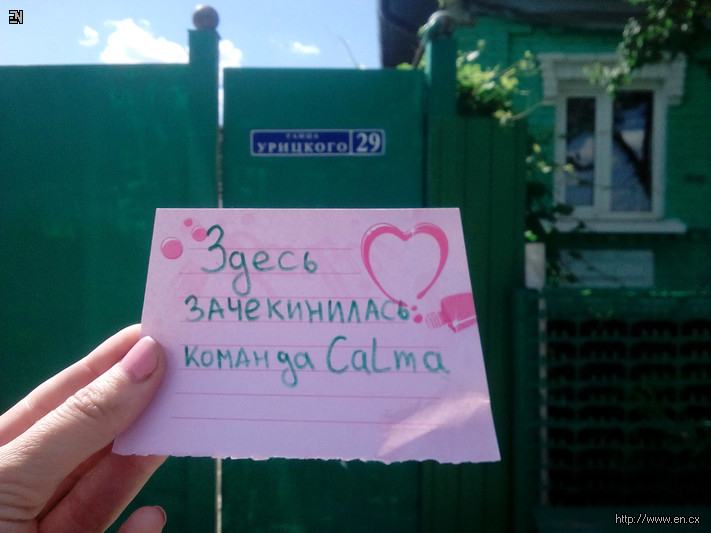 EN
УЛИЦА
УРИЦКОГО 29
Здесь
зачекинилась
команда Calma
http://www.en.cx